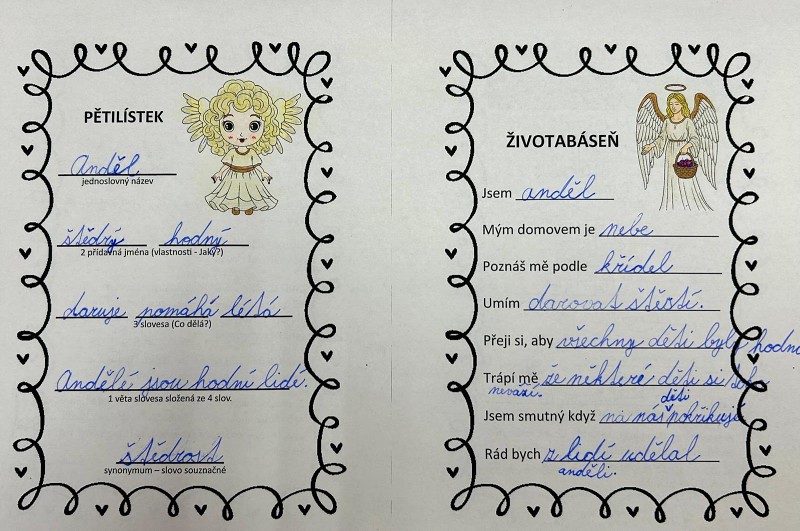 PĚTILÍSTEK
Anděl
jednoslovný název
štědrý hodný
2 přídavná jména (vlastnosti - Jaký?)
daruje pomáhá létá
3 slovesa (Co dělá?)
Andělé jsou hodní lidé.
1 věta slovesa složená ze 4 slov.
štědrost
synonymum – slovo souznačné
ŽIVOTABÁSEŇ
Jsem anděl
Mým domovem je nebe
Poznáš mě podle křídel
Umím darovat štěstí.
Přeji si, aby všechny děti byly hodné
Trápí mě že některé děti si toho
neváží.
Jsem smutný když na nás děti pokřikují
Rád bych z lidí udělal
anděli.